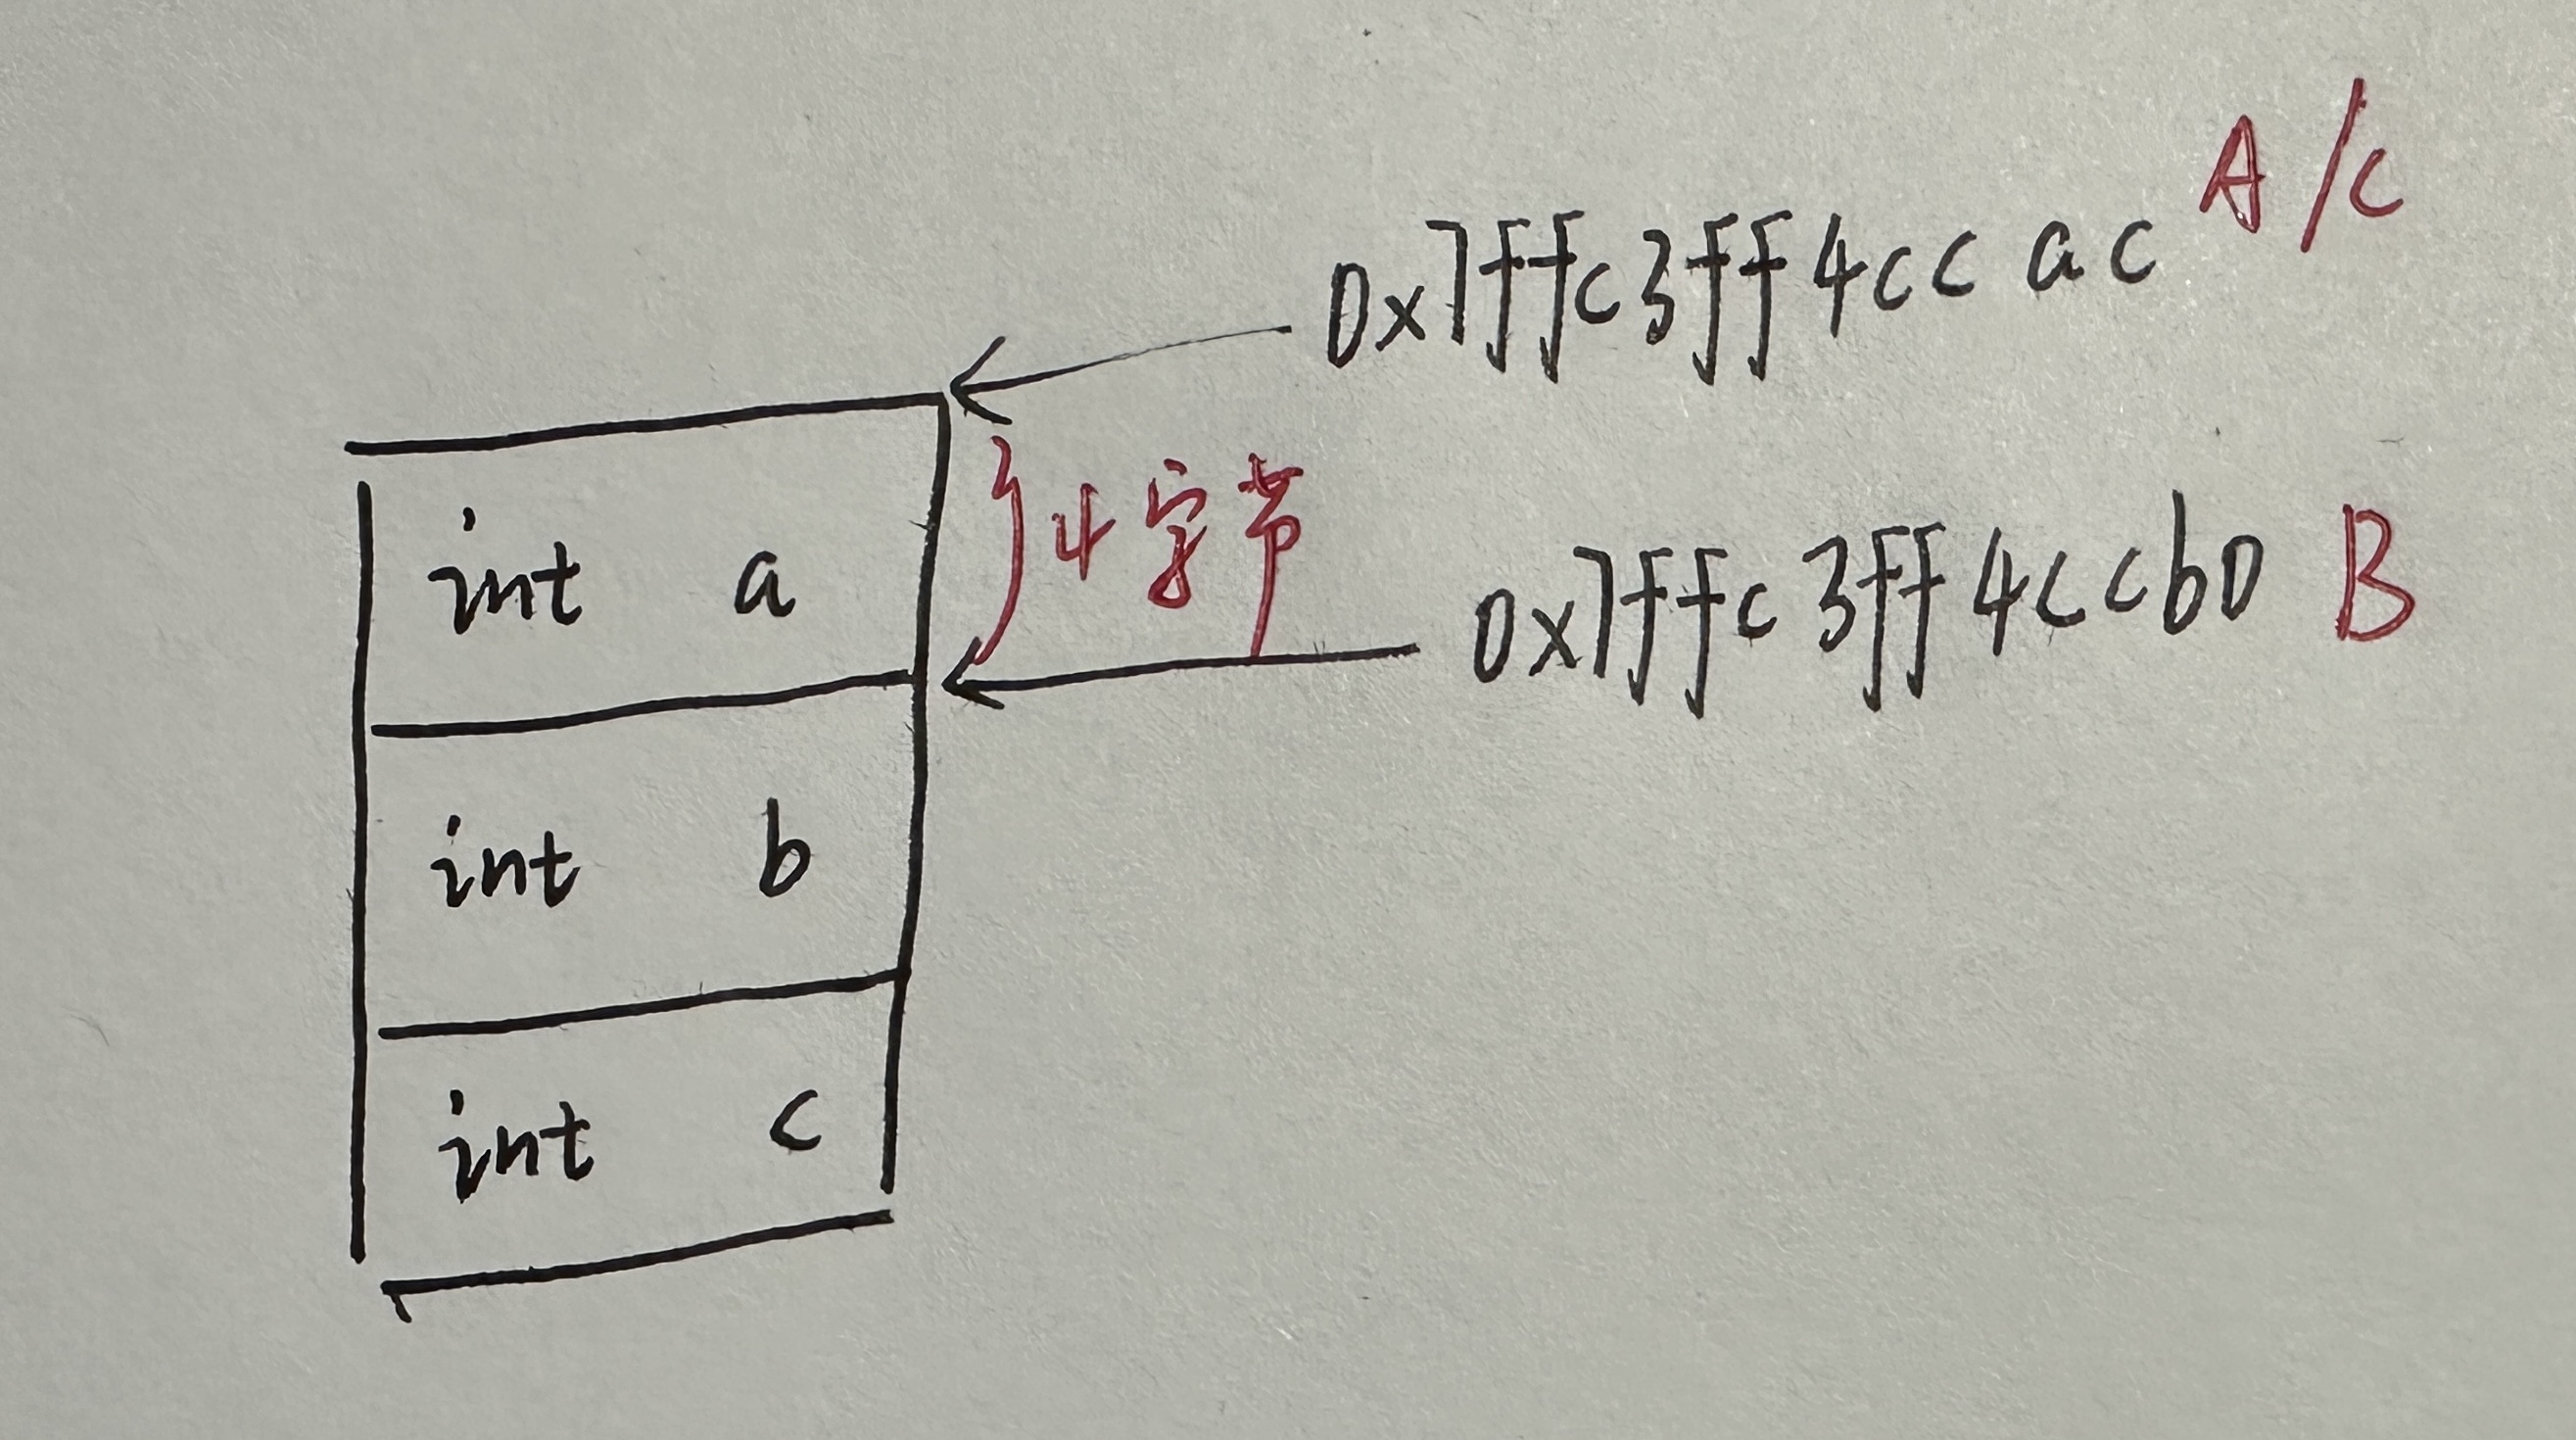 0x7ffc3ff4ccac A/C
int a
4字节
0x7ffc3ff4ccb0 B
int b
int c